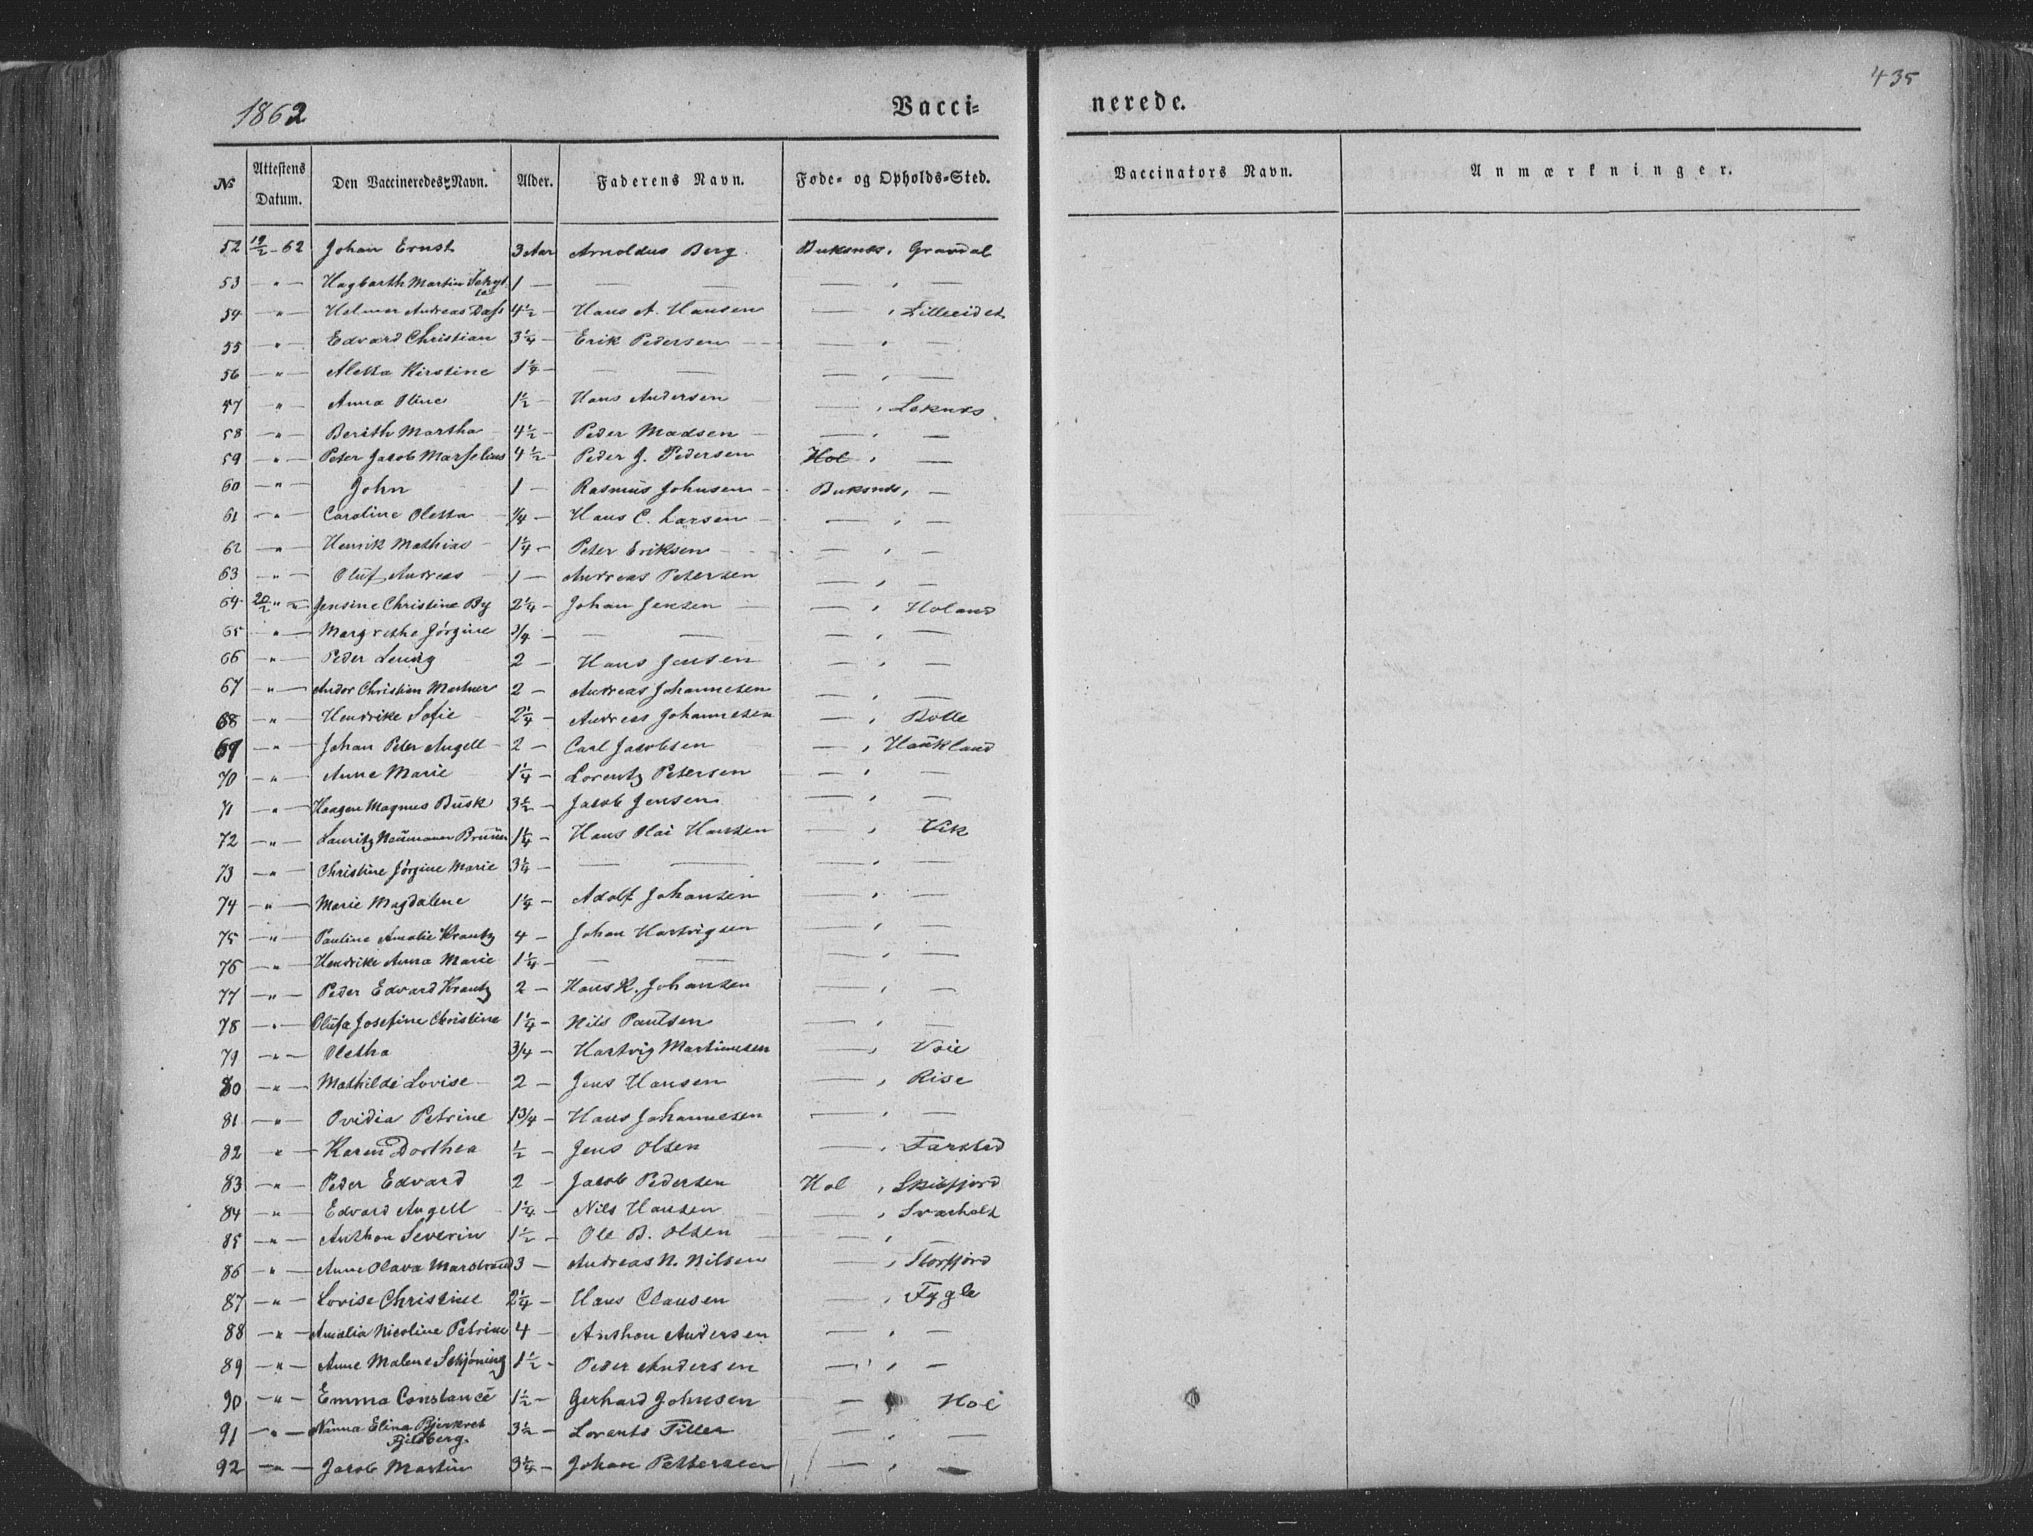 435
1862
Vacci= nerede.
№ Attestens Datum. Den Vaccineredes Navn. Alder. Faderens Navn. Føde- og Opholds-Sted. Vaccinators Navn. Anmærkninger.
52 19/2-62 Johan Ernst 3 Aar Arnoldus Berg Buksnes, Gravdal
53 — " — Hagbarth Martin 1 — — — — , —
54 — " — Helmer Andreas Dass 4½ — Hans A. Hansen — , Lilleeidet
55 — " — Edvard Christian 3¼ — Erik Pedersen — , —
56 — " — Aletta Kirstine 1¼ — — — — , —
57 — " — Anna Oline 1½ — Hans Andersen — , Leknes
58 — " — Berith Martha 4½ — Peder Madsen — , —
59 — " — Peter Jacob Marselius 4½ — Peder J. Pedersen Hol , —
60 — " — John 1 — Rasmus Johnsen Buksnes, —
61 — " — Caroline Oletta ¼ — Hans C. Larsen — , —
62 — " — Henrik Mathias 1¼ — Peter Eriksen — , —
63 — " — Oluf Andreas 1 — Andreas Petersen — , —
64 20/2 " — Jensine Christine By 2¼ — Johan Jensen — , Holand
65 — " — Margrethe Jørgine 3/4 — — — — , —
66 — " — Peder 2 — Hans Jensen — , —
67 — " — Andor Christian Martner 2 — Andreas Johannesen — , —
68 — " — Hendrike Sofie 2¼ — Andreas Johannesen — , Bolle
69 — " — Johan Peter Angell 2 — Carl Jacobsen — , Haukland
70 — " — Anne Marie 1¼ — Lorentz Petersen — , —
71 — " — Haagen Magnus Busk 3½ — Jacob Jensen — , —
72 — " — Lauritz Naumann Bruun 1¼ — Hans Olai Hansen — , Vik
73 — " — Christine Jørgine Marie 3¼ — — — — , —
74 — " — Marie Magdalene 1¼ — Adolf Johansen — , —
75 — " — Pauline Amalie Krantz 4 — Johan Hartvigsen — , —
76 — " — Hendrike Anna Marie 1¼ — — — — , —
77 — " — Peder Edvard Krantz 2 — Hans K. Johansen — , —
78 — " — Olufa Josefine Christine 1¼ — Nils Paulsen — , —
79 — " — Oletha 3/4 — Hartvig Martinesen — , Voie
80 — " — Mathilde Lovise 2 — Jens Hansen — , Rise
81 — " — Ovidia Petrine 1 3/4 — Hans Johannesen — , —
82 — " — Karen Dorthea ½ — Jens Olsen — , Farsted
83 — " — Peder Edvard 2 — Jacob Pedersen Hol , Skiefjord
84 — " — Edvard Angell 1¼ — Nils Hansen — , Svarholt
85 — " — Anthon Severin 1½ — Ole B. Olsen — , —
86 — " — Anne Olava Marstrand 3 — Andreas N. Nilsen — , Storfjord
87 — " — Lovise Christine 2¼ — Hans Clausen — , Fygle
88 — " — Amalia Nicoline Petrine 4 — Anthon Andersen — , —
89 — " — Anne Malene Schjøning 1½ — Peder Andersen — , —
90 — " — Emma Constance 1½ — Gerhard Johnsen — Hol
91 — " — Nanna Elina Bjerkvet Fjeldberg 3½ — Lorents Tiller — , —
92 — " — Jacob Martin 3¼ — Johan Pettersen — , —